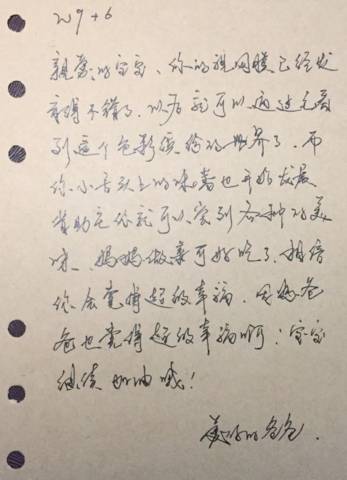 W9+6
親愛的宝宝、你的视网膜已经发
育得不错了、以后就可以通过它看
到这个色彩缤纷的世界了、而
你小舌头上的味蕾也开始发展、
借助它你就可以尝到各种的美
味、妈妈做菜可好吃了、相信
你会觉得超级幸福、因为爸
爸也觉得超级幸福啊！宝宝
继续加油哦！
爱你的爸爸.